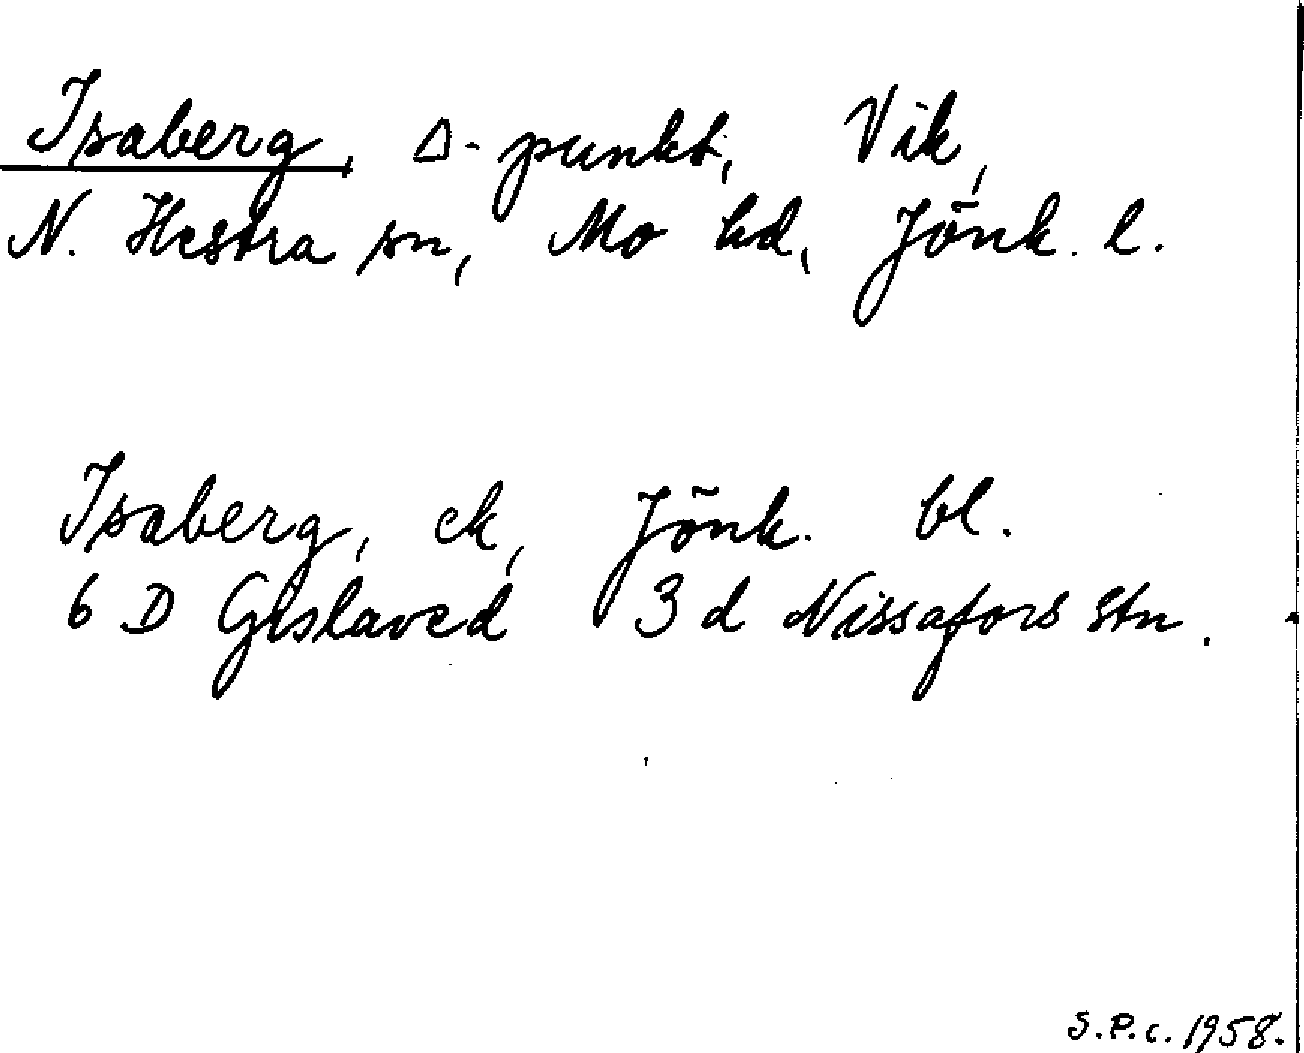 Isaberg, Δ-punkt, Vik,
N. Hestra sn, Mo hd, Jönk. l.
Isaberg, ek, Jönk. bl.
6 D Gislaved 3 d Nissafors stn.
S.P.c. 1958.